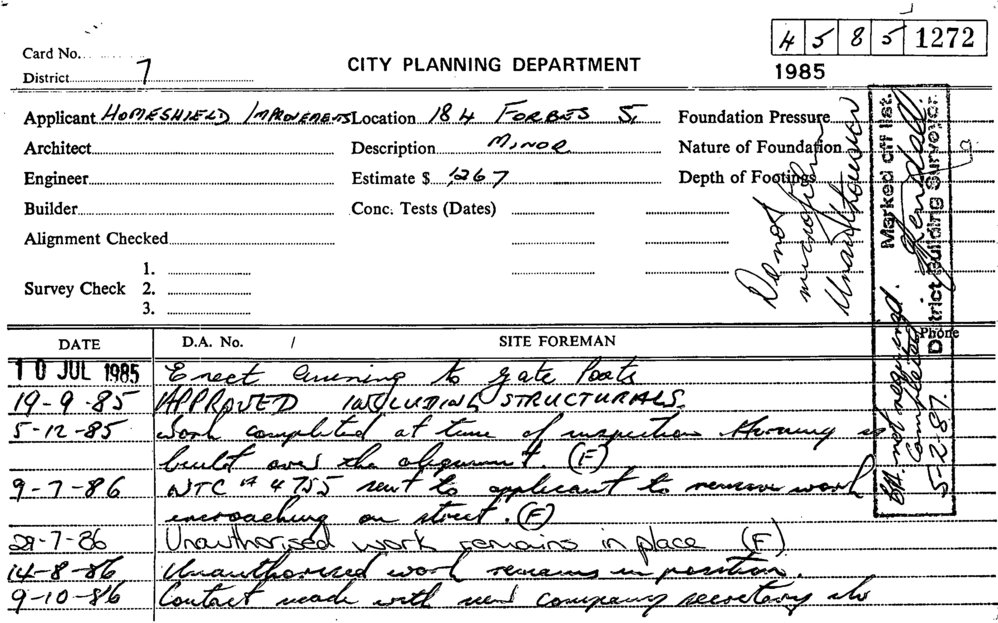 4 5 8 5 1272
Card No.
District 7
CITY PLANNING DEPARTMENT
1985
Applicant HOMESHIELD IMPROVEMENTS Location 184 FORBES S.
Foundation Pressure
Architect
Description MINOR
Nature of Foundation
Engineer
Estimate $ 1267
Depth of Footings
Builder
Conc. Tests (Dates)
Alignment Checked
1.
Survey Check 2.
3.
Do not
microfilm
Unauthorised
Marked off list.
District Building Surveyor.
BA. not required.
Completed
5-2-87.
Phone
DATE D.A. No. / SITE FOREMAN
10 JUL 1985 Erect Awning to Gate Posts
19-9-85 APPROVED INCLUDING STRUCTURALS.
5-12-85 Work completed at time of inspection Awning is
built over the alignment. (F)
9-7-86 NTC # 4755 sent to applicant to remove work
encroaching on street. (F)
29-7-86 Unauthorised work remains in place (F)
14-8-86 Unauthorised work remains in position.
9-10-86 Contact made with new company secretary who